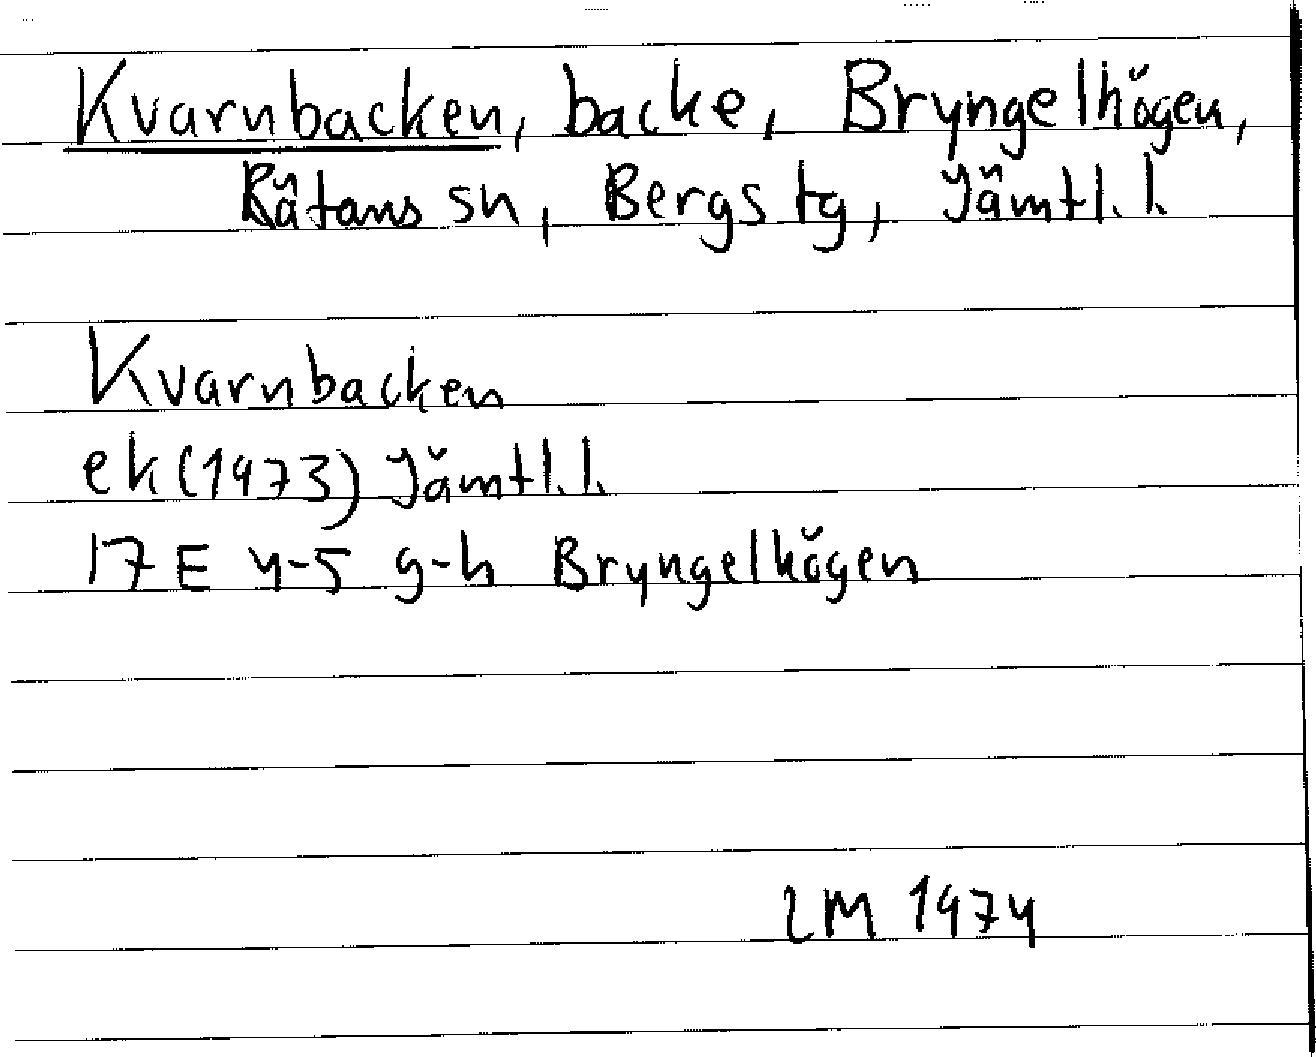 Kvarnbacken, backe, Bryngelhögen,
Rätans sn, Bergs tg, Jämtl. l.
Kvarnbacken
ek (1973) Jämtl. l.
17 E 4-5 g-h Bryngelhögen
LM 1974